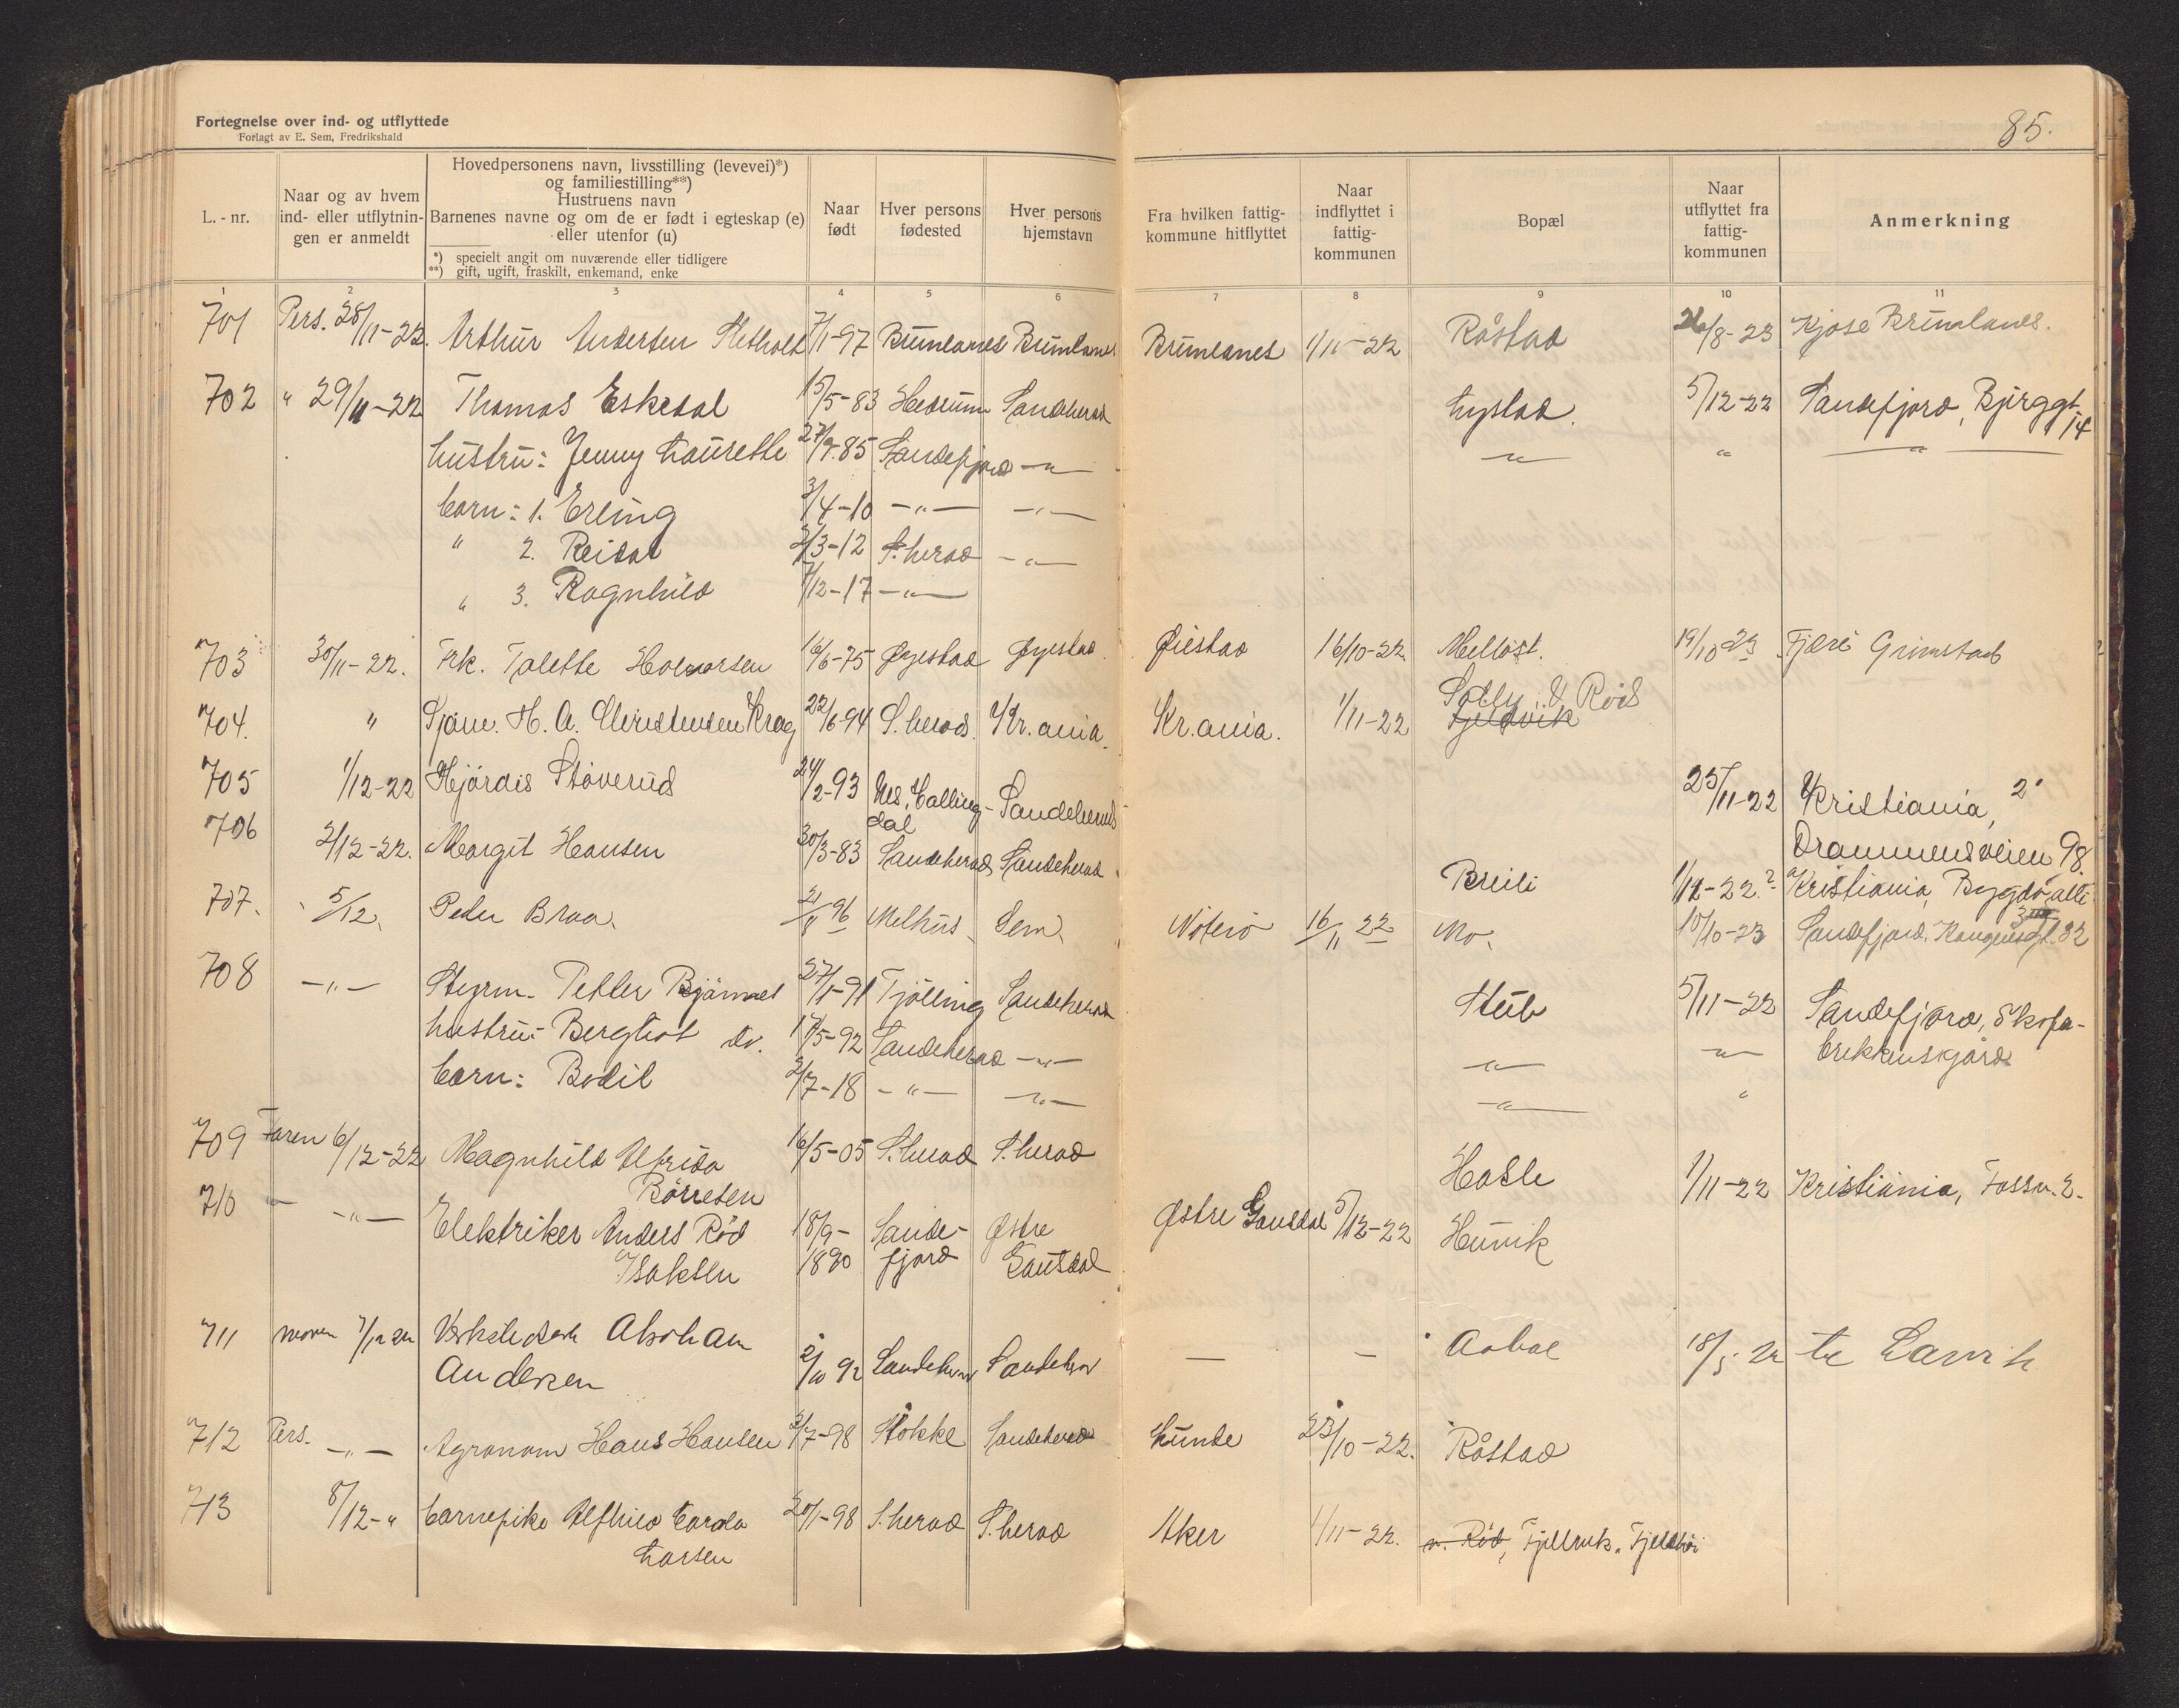 85.
Fortegnelse over ind- og utflyttede
Forlagt av E. Sem, Fredrikshald
L.-nr.
Naar og av hvem ind- eller utflytnin- gen er anmeldt
Hovedpersonens navn, livsstilling (levevei)*)
og familiestilling**)
Hustruens navn
Barnenes navne og om de er født i egteskap (e)
eller utenfor (u)
*) specielt angit om nuværende eller tidligere
**) gift, ugift, fraskilt, enkemand, enke
Naar født
Hver persons fødested
Hver persons hjemstavn
Fra hvilken fattig- kommune hitflyttet
Naar indflyttet i fattig- kommunen
Bopæl
Naar utflyttet fra fattig- kommunen
Anmerkning
1 2 3 4 5 6 7 8 9 10 11
701 Pers. 28/11-22. Arthur Andersen 7/1-97 Brunlanes Brunlanes Brunlanes 1/11-22 Råstad 26/8-23 Kjose Brunlanes.
702 " 29/11-22 Thomas Eskedal 15/5-83 Hedrum Sandeherad Lystad. 5/12-22 Sandefjord, Bjerggt. 14
hustru: Jenny Laurette 27/9.85 Sandefjord -"- -"- " -"-
barn: 1. Erling 3/4-10 -"- -"-
" 2. Reidar 2/3-12 S.herad -"-
" 3. Ragnhild 7/12-17 -"-
703 30/11-22. Frk. Talette Halvorsen 16/6-75 Øyestad Øyestad Øiestad 16/10-22. Melløst. 19/10 23 Fjære Grimstad
704. " Sjøm. H. A. Christensen Krag 22/6-94 S.herad. Kr.ania. Kr.ania. 1/11-22 Solly V. Rød
Fjeldvik
705 1/12-22 Hjørdis Støverud 24/2-93 Nes, Halling-
dal Sandeherad 25/11-22 Kristiania,
Drammensveien 98.
706 2/12-22. Margit Hansen 30/3-83 Sandeherad Sandeherad Breili 1/12-22.? Kristiania, Bygdø alle
707. 5/12. Peder Braa. 21/11 96 Melhus Sem. Nøterø 16/11 22 Mo. 10/10-23 Sandefjord. Kongensgt. 32
708 -"- Styrm. Petter Bjønnes 27/1-91 Tjølling Sandeherad Stub 5/11-22 Sandefjord, Skofa-
brikkensgård
hustru: Bergliot do. 17/5-92 Sandeherad -"- -"- -"-
barn: Bodil 2/7-18 -"- -"- -"- "
709 Faren 6/12-22 Magnhild Alfrida
Børresen 16/5-05 S.herad S.herad Hasle 1/11-22 Kristiania, Fossv. 2.
710 -"- Elektriker Anders Rød
Isaksen 18/9-
1890 Sande-
fjord Østre
Gausdal Østre Gausdal 5/12-22 Hunvik
711 moren 7/12 22 Abraham
Andersen 2/10 92 Sandeherd Sandeherd — — 18/5. 22
712 Pers. -"- Agronom Hans Hansen 3/7-98 Stokke Sandeherad Lunde 23/10-22. Råstad
713 8/12-" barnepike Alfhild Carda
Larsen 20/1-98 S.herad S.herad Aker 1/11-22. n. Rød, Fjellvik,